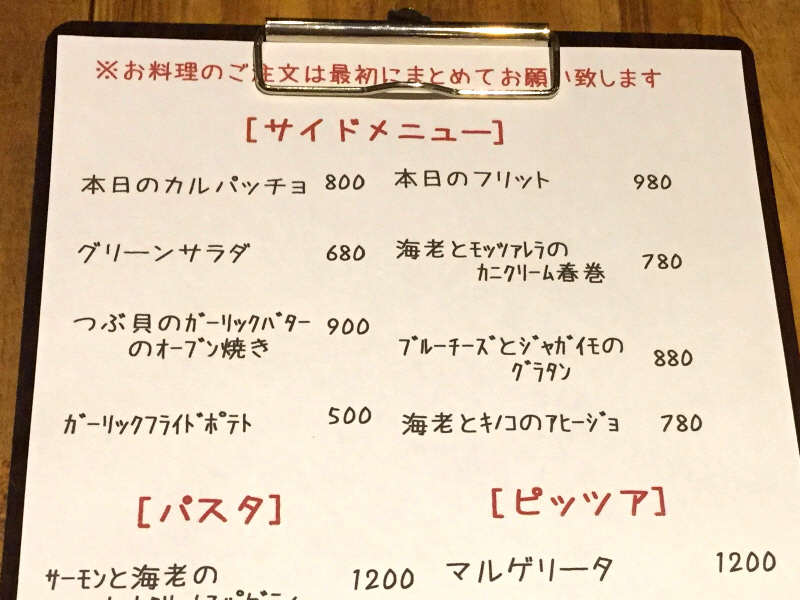 ※お料理のご注文は最初にまとめてお願い致します
[サイドメニュー]
本日のカルパッチョ 800
グリーンサラダ 680
つぶ貝のｶﾞｰﾘｯｸﾊﾞﾀｰ
のｵｰﾌﾞﾝ焼き 900
ｶﾞｰﾘｯｸﾌﾗｲﾄﾞﾎﾟﾃﾄ 500
本日のフリット 980
海老とﾓｯﾂｧﾚﾗの
ｶﾆｸﾘｰﾑ春巻 780
ﾌﾞﾙｰﾁｰｽﾞとｼﾞｬｶﾞｲﾓの
ｸﾞﾗﾀﾝ 880
海老とｷﾉｺのｱﾋｰｼﾞｮ 780
[パスタ]
ｻｰﾓﾝと海老の 1200
[ピッツア]
マルゲリータ 1200